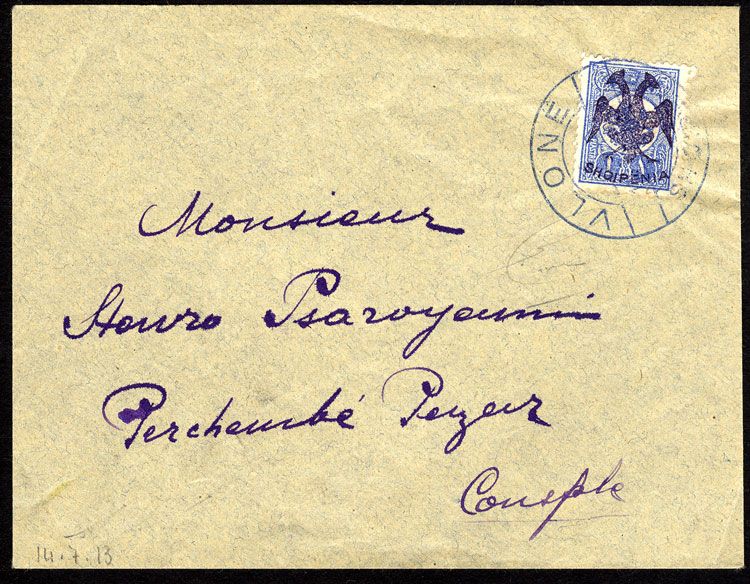 VLONË
SHQIPENIA
Monsieur
Stavro Psaroyanni
Perchembé Pazar
Consple
14.7.13